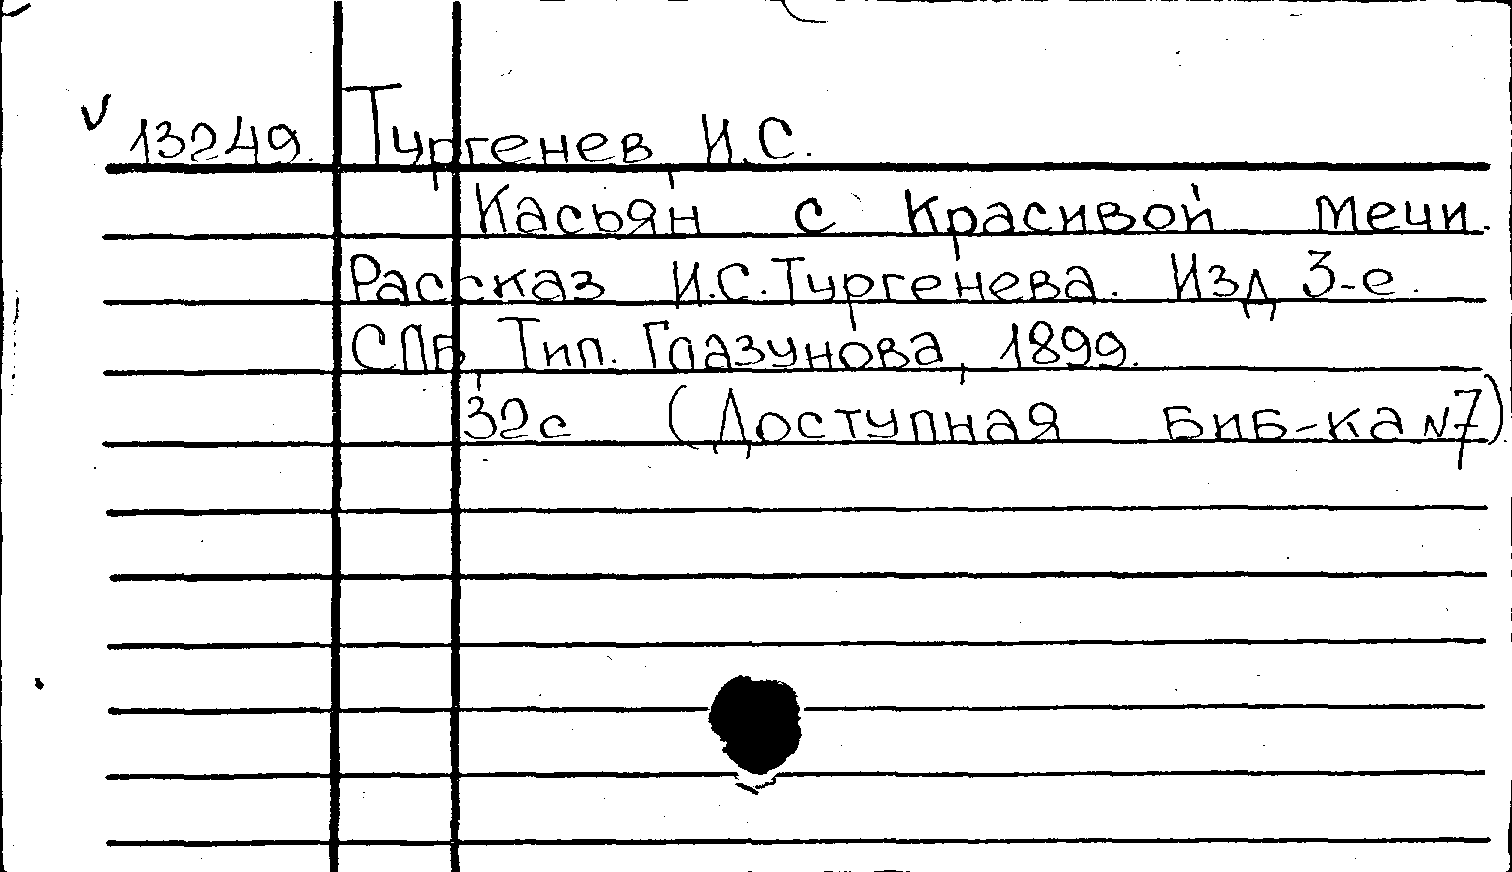 v 13249. Тургенев, И.С.
Касьян с Красивой мечи.
Рассказ И.С.Тургенева. Изд 3-е.
СПБ, Тип. Глазунова, 1899.
32с (Доступная биб-ка №7)